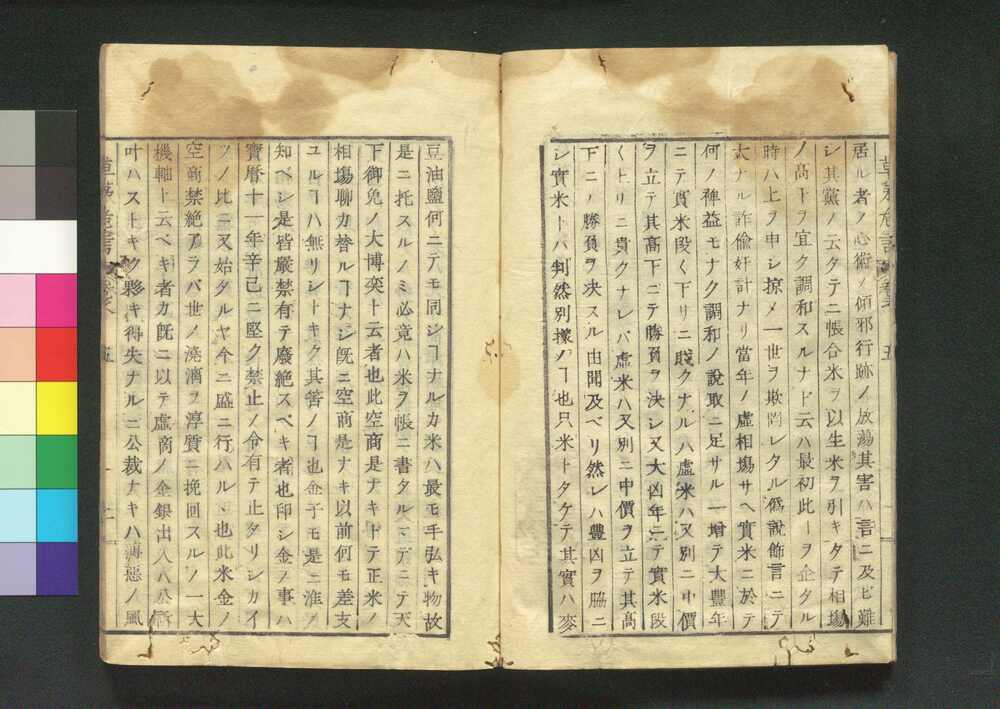 居ル者ノ心術ノ傾邪行跡ノ放蕩其害ハ言ニ及ビ難
シ其黨ノ云タテニ帳合米ヲ以生米ヲ引キタテ相場
ノ高下ヲ宜ク調和スルナド云ハ最初此ヿヲ企タル
時ハ上ヲ申シ掠メ一世ヲ欺罔レタル偽說飾言ニテ
大ナル詐偷奸計ナリ當年ノ虛相場サヘ實米ニ於テ
何ノ裨益モナク調和ノ說取ニ足サル一增テ大豐年
ニテ實米段〱下リニ賤クナルハ虛米ハ又別ニ中價
ヲ立テ其高下ニテ勝負ヲ決シ又大凶年ニテ實米段
〱上リニ貴クナレバ虛米ハ又別ニ中價ヲ立テ其高
下ニノ勝負ヲ决スル由聞及ベリ然レハ豐凶ヲ脇ニ
シ實米トハ判然別樣ノヿ也只米トタケテ其實ハ麥
草茅危言 卷之八 五
豆油鹽何ニテモ同シヿナルカ米ハ最モ手弘キ物故
是ニ托スルノミ必竟ハ米ヲ帳ニ書タルマデニテ天
下御免ノ大博奕ト云者也此空商是ナキトテ正米ノ
相場聊カ替ルヿナシ旣ニ空商是ナキ以前何モ差支
ユルヿハ無リシトキク其筈ノヿ也金子モ是ニ准ノ
知ベシ是皆嚴禁有テ廢絕スベキ者也印シ金ノ事ハ
寶曆十一年辛巳ニ堅ク禁止ノ令有テ止タリシカイ
ツノ比ニ又始タルヤ今ニ盛ニ行ハルヽ也此米金ノ
空商禁絕アラバ世ノ澆漓ヲ淳質ニ挽回スルノ一大
機軸ト云ベキ者カ旣ニ以テ虛商ノ金銀出入ハ公訴
叶ハストキク夥キ得失ナルニ公裁ナキハ海惡ノ風